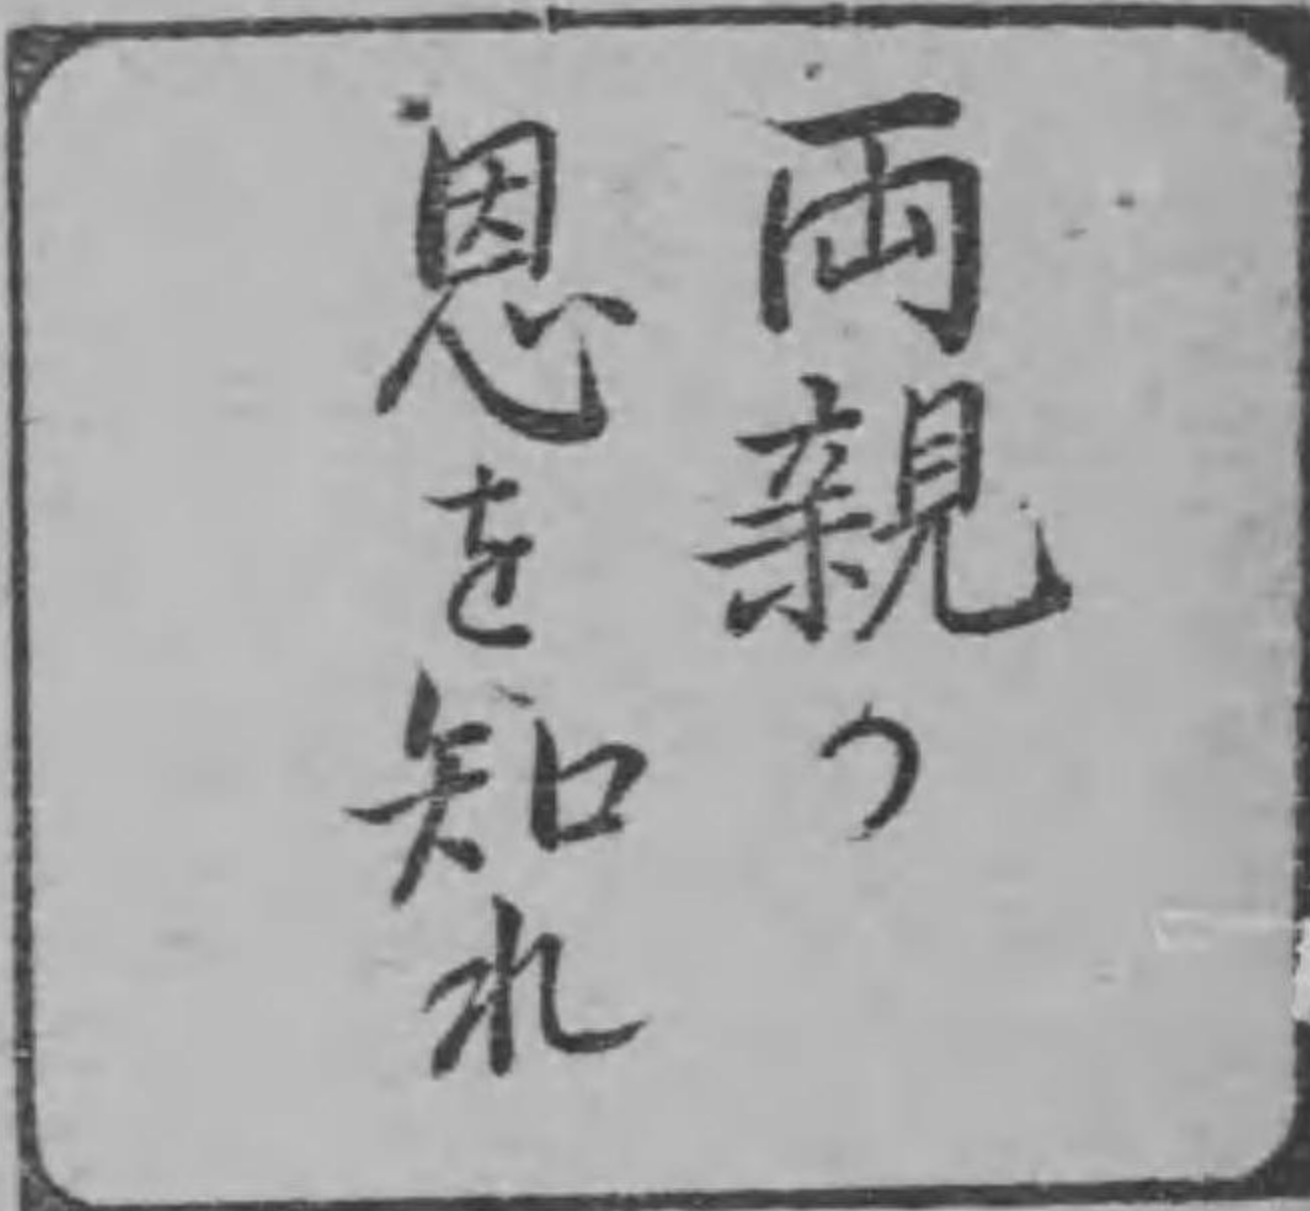 両親の
恩を知れ